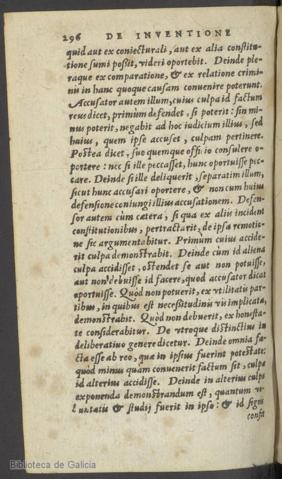 296 DE INVENTIONE
quid aut ex coniecturali, aut ex alia constitu-
tione sumi possit, videri oportebit. Deinde ple-
raque ex comparatione, & ex relatione crimi-
nis in hanc quoque causam convenire poterunt.
Accusator autem illum, cuius culpa id factum
reus dicet, primùm defendet, si poterit: sin mi-
nus poterit, negabit ad hoc iudicium illius, sed
huius, quem ipse accuset, culpam pertinere.
Postea dicet, suo quemque officio consulere o-
portere: nec si ille peccasset, hunc oportuisse pec-
care. Deinde si ille deliquerit, separatim illum,
sicut hunc accusari oportere, & non cum huius
defensione coniungi illius accusationem. Defen-
sor autem cùm cætera, si qua ex aliis incident
constitutionibus, pertractarit, de ipsa remotio-
ne sic argumentabitur. Primum cuius accide-
rit culpa demonstrabit. Deinde cùm id aliena
culpa accidisset, ostendet se aut non potuisse,
aut non debuisse id facere, quod accusator dicat
oportuisse. Quòd non potuerit, ex vtilitatis par-
tibus, in quibus est necessitudinis vis implicata,
demonstrabit. Quòd non debuerit, ex honesta-
te considerabitur. De vtroque distinctius in
deliberativo genere dicetur. Deinde omnia fa-
cta esse ab reo, quæ in ipsius fuerint potestate:
quòd minus quàm convenerit factum sit, culpa
id alterius accidisse. Deinde in alterius culpa
exponenda demonstrandum est, quantum vo-
luntatis & studij fuerit in ipso: & id signis
confir
Biblioteca de Galicia